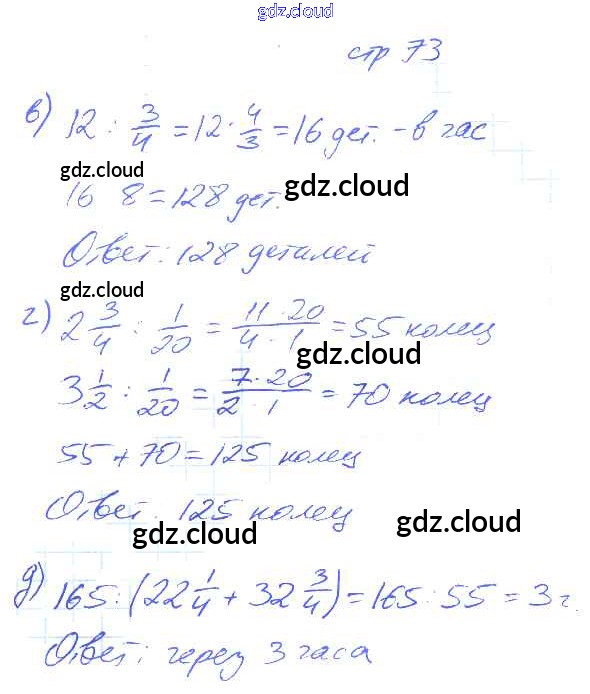 gdz.cloud
стр 73
в) 12 : 3/4 = 12 · 4/3 = 16 дет. - в час
gdz.cloud
gdz.cloud
16 8 = 128 дет.
Ответ: 128 деталей
gdz.cloud
г) 2 3/4 : 1/20 = 11·20/4·1 = 55 колец
gdz.cloud
3 1/2 : 1/20 = 7·20/2·1 = 70 колец
55 + 70 = 125 колец
Ответ. 125 колец
gdz.cloud
gdz.cloud
д) 165 : (22 1/4 + 32 3/4) = 165 : 55 = 3 г.
Ответ: через 3 часа